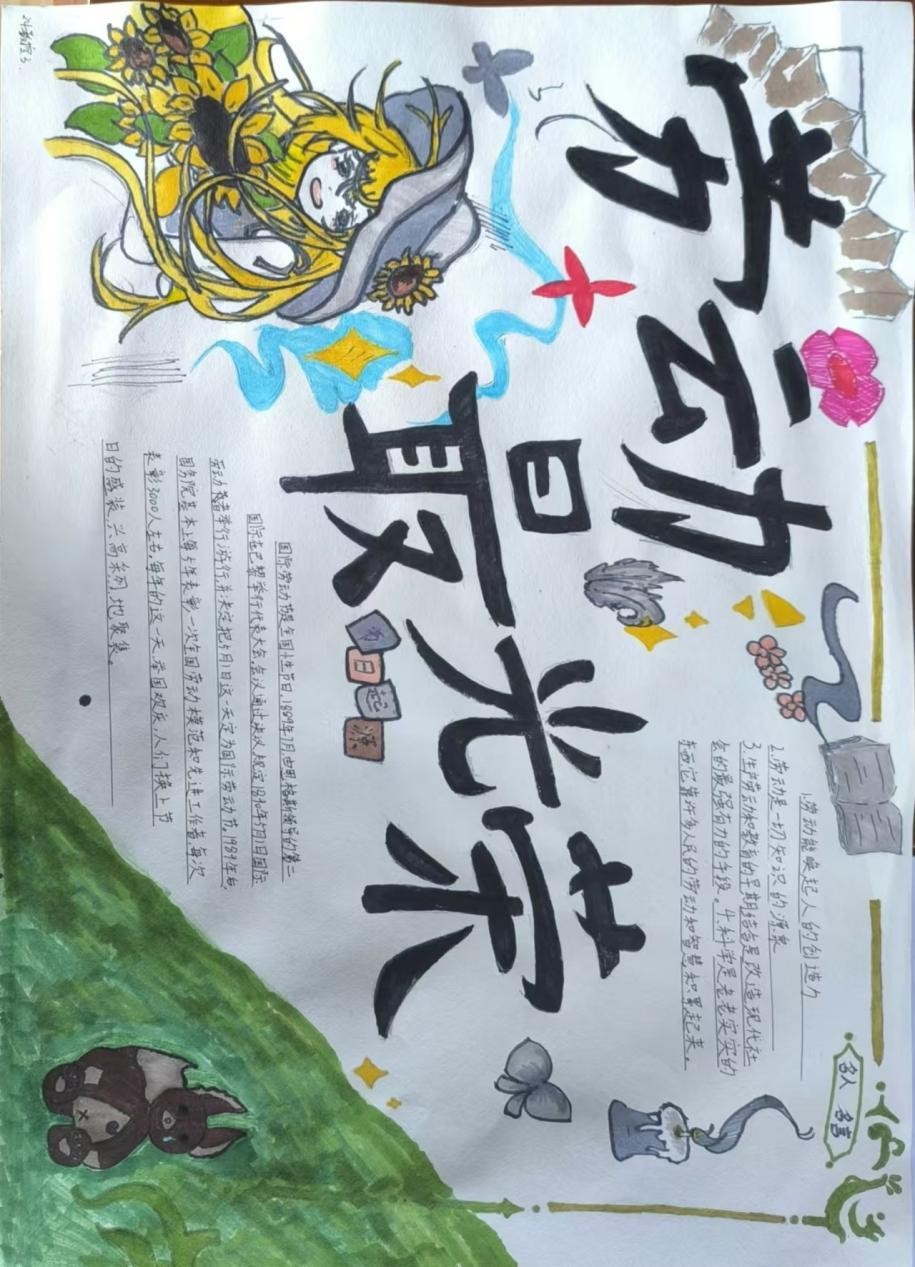 劳动
最光荣
名人名言
1.劳动能唤起人的创造力
2.劳动是一切知识的源泉
3.生产劳动和教育的早期结合是改造现代社
会的最强有力的手段。4.科学是老老实实的
东西,它靠许多人民的劳动和智慧积累起来。
节日起源
国际劳动节是全国节日,1889年7月由恩格斯领导的第二
国际在巴黎举行代表大会,会议通过决议,规定1890年5月1日国际
劳动者举行游行,并决定把5月1日这一天定为国际劳动节。1989年后
国务院基本上每5年表彰一次全国劳动模范和先进工作者,每次
表彰3000人左右,每年的这一天,举国欢庆,人们换上节
日的盛装,兴高采烈地聚集。